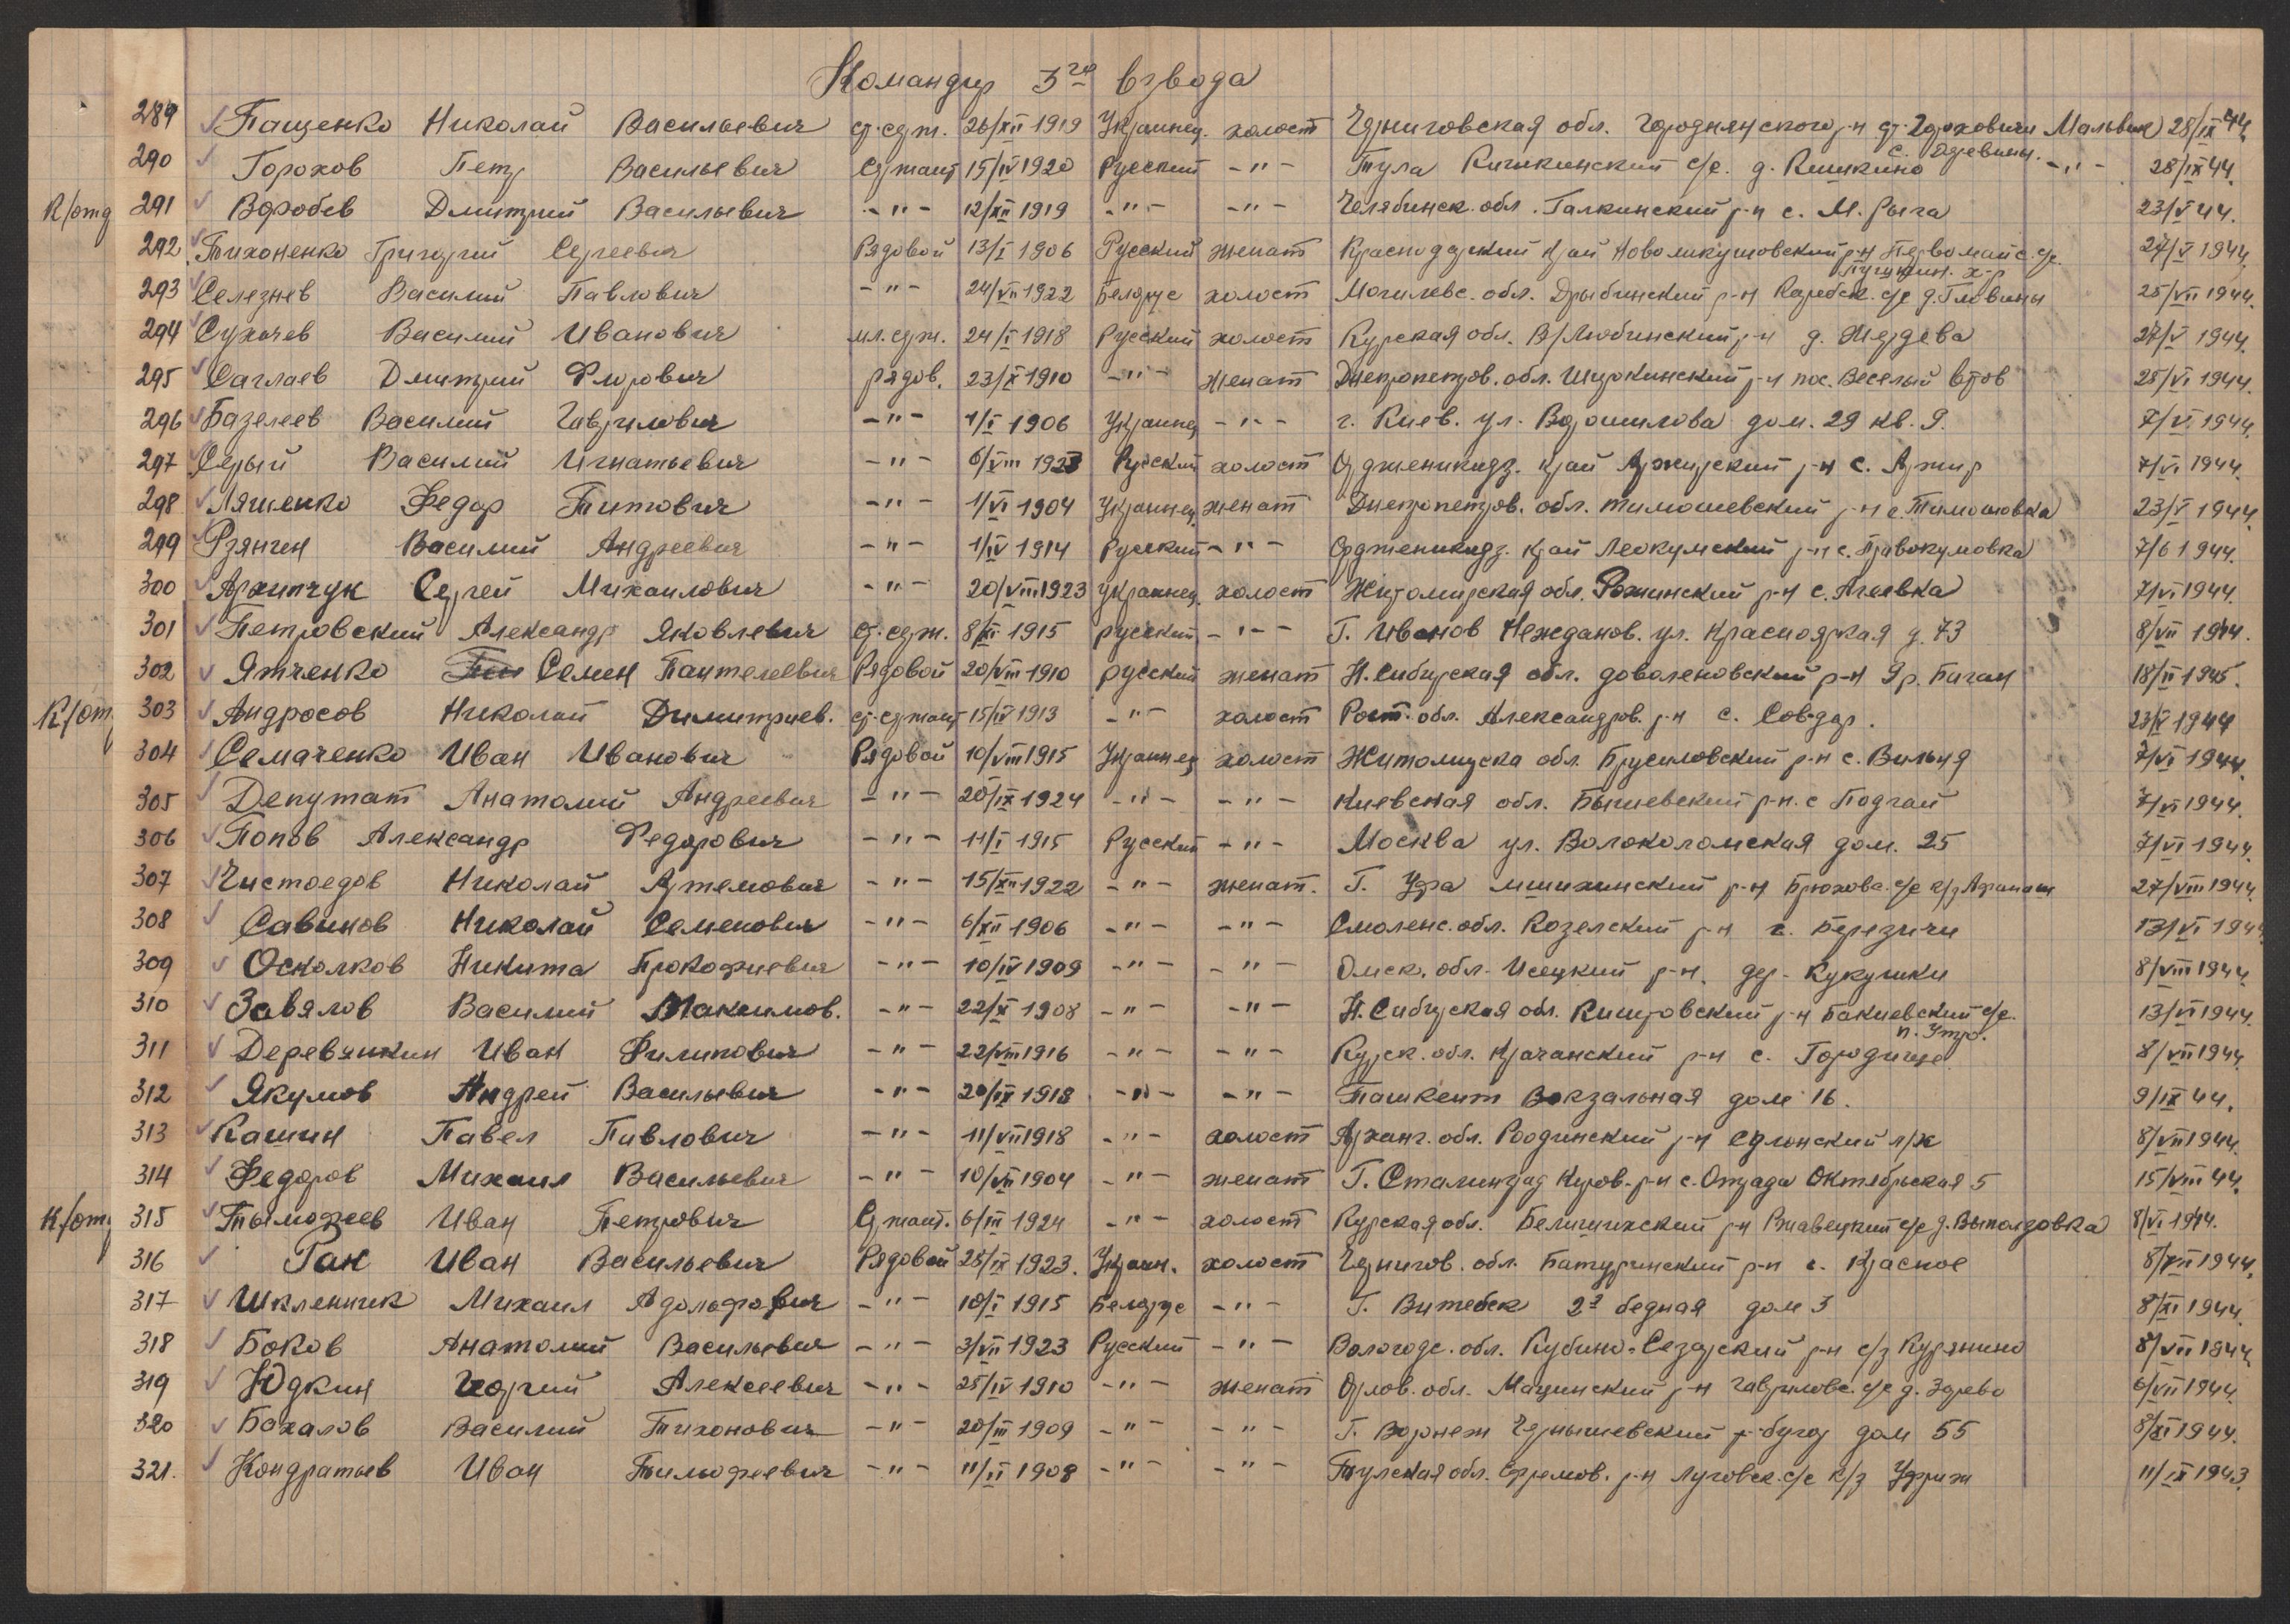 Командир 3го взвода
289 Пащенко Николай Васильевич ст. серж. 26/XII 1919 Украинец. холост Черниговская обл. Городнянского р-н Мальвы 28/IX 44.
с. Деревины.
290 Горохов Петр Васильевич Сержант 15/IV 1920 Русский -"- Тула Кишкинский с/с. д. Кишкино -"- 28/IX 44.
К/отд 291 Воробев Дмитрий Васильевич -"- 12/XII 1919 -"- -"- Челябинск. обл. Галкинский р-н с. М. Рыга 23/V 44.
292 Тихоненко Григорий Сергеевич Рядовой 13/I 1906 Русский женат Краснодарский край р-н Первомайс. с/с. 27/V 1944.
х-р
293 Селезнев Василий Павлович -"- 24/VII 1922 Белорус холост Могилевс. обл. Дрыбинский р-н с/с д. Гловины 25/VII 1944.
294 Сухочев Василий Иванович мл. серж. 24/I 1918 Русский холост Курская обл. В/Любинский р-н д. Жердева 27/V 1944.
295 Саглаев Дмитрий Флорович рядов. 23/X 1910 -"- женат Днепропетров. обл. Широкинский р-н пос. Веселый 25/VI 1944.
296 Базелеев Василий Гаврилович -"- 1/I 1906 Украинец -"- г. Киев. ул. Ворошилова дом. 29 кв. 9. 7/VI 1944.
297 Серый Василий Игнатьевич -"- 6/VIII 1923 Русский холост Ордженикидз. край Арзгирский р-н с. 7/VI 1944.
298 Ляшенко Федор Титович -"- 1/VI 1904 Украинец. женат Днепропетров. обл. тимошевский р-н с. Тимошовка 23/V 1944.
299 Рзянген Василий Андреевич -"- 1/IV 1914 Русский -"- Ордженикидз. край Леокумский р-н с. Правокумовка 7/6 1944.
300 Архипчук Сергей Михайлович -"- 20/VIII 1923 украинец. холост Житомирская обл. Ружинский р-н с. Агеевка 7/VI 1944.
301 Петровский Александр Яковлевич ст. серж. 8/XI 1915 русский -"- Г. Иванов Нежданов. ул. Красноярская д. 73 8/VII 1944.
302 Ятченко Семен Пантелеевич Рядовой 20/VIII 1910 русский женат Н. Сибирская обл. доволеновский р-н Яр. Баган 18/II 1945.
К/отд 303 Андросов Николай Димитриев. ст. сержант 15/IV 1913 -"- холост Рост. обл. Александров. р-н с. Сов-дар. 23/V 1944
304 Семаченко Иван Иванович Рядовой 10/VIII 1915 Украинец холост Житомирска обл. Брусиловский р-н с. Вильня 7/VI 1944.
305 Депутат Анатолий Андреевич -"- 20/IX 1924 -"- -"- Киевская обл. Бышевский р-н. с Подгай 7/VI 1944.
306 Попов Александр Федорович -"- 11/I 1915 Русский -"- Москва ул. Волоколомская дом. 25 7/VI 1944.
307 Чистоедов Николай Артемович -"- 15/XII 1922 -"- женат. Г. Уфа мишкинский р-н Брюхова. с/с 27/VIII 1944.
308 Савинов Николай Семенович -"- 6/XII 1906 -"- -"- Смоленс. обл. Козелский р-н с. Березичи 13/VI 1944.
309 Осколков Никита Прокофиевич -"- 10/IV 1909 -"- -"- Омск. обл. Исецкий р-н. дер. Кукушки 8/VIII 1944.
310 Завялов Василий Максимов. -"- 22/X 1908 -"- -"- Н. Сибирская обл. Киштовский р-н Бакиевский с/с. 13/VI 1944.
311 Деревянкин Иван Филипович -"- 22/VIII 1916 -"- -"- Курск. обл. Крачанский р-н с. Городище 8/VII 1944.
312 Якумов Андрей Васильевич -"- 20/IX 1918 -"- -"- Ташкент Вокзальная дом 16. 9/IX 44.
313 Кашин Павел Павлович -"- 11/VII 1918 -"- холост Арханг. обл. р-н л/х 8/VII 1944.
314 Федоров Михаил Васильевич -"- 10/VII 1904 -"- женат Г. Сталинград Киров. р-н с. Отрада Октябрьская 5 15/VIII 44.
К/отд 315 Тымофеев Иван Петрович Сржант. 6/III 1924 -"- холост Курская обл. р-н Ржавецкий с/с д. 8/VI 1944.
316 Ган Иван Васильевич Рядовой 28/IX 1923. Украин. холост Чернигов. обл. Батуринский р-н с. Красное 8/VII 1944.
317 Шкленник Михаил Адольфович -"- 10/I 1915 Белорус -"- Г. Витебск 2я бедная дом 3 8/XI 1944.
318 Боков Анатолий Васильевич -"- 3/VII 1923 Русский -"- Вологодс. обл. Кубино-Сезарский р-н с/з Курянино 8/VII 1944.
319 Юдкин Георгий Алексеевич -"- 25/IV 1910 -"- женат Орлов. обл. р-н Гаврилове. с/с д. 6/VII 1944.
320 Бахалов Василий Тихонович -"- 20/III 1909 -"- -"- Г. Воронеж Чернышевский бугор дом 55 8/XI 1944.
321. Кондратьев Иван Тимофеевич -"- 11/II 1908 -"- -"- Тулская обл. Ефремов. р-н Луговск. с/с к/з 11/IX 1943.